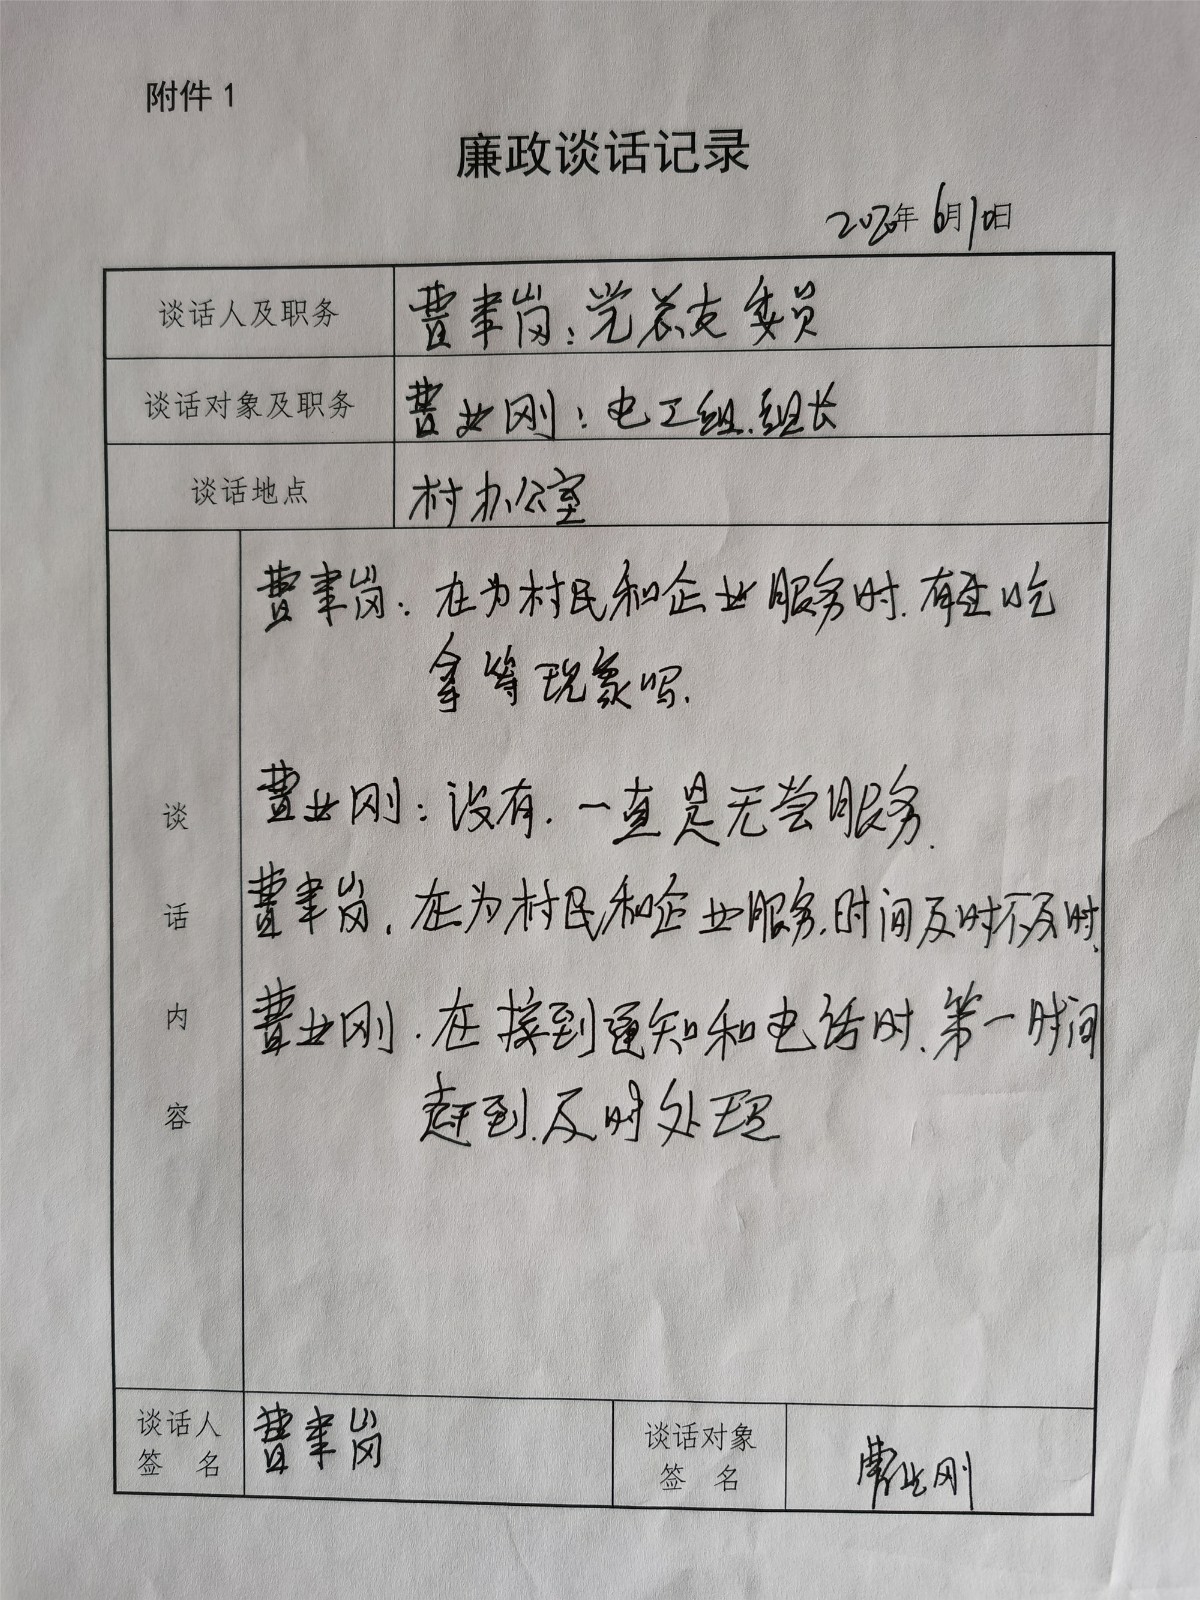 附件1
廉政谈话记录
2020年6月10日
谈话人及职务 曹聿岗：党总支委员
谈话对象及职务 曹业刚：电工组.组长
谈话地点 村办公室
谈话内容
曹聿岗：在为村民和企业服务时.有过吃
拿等现象吗.
曹业刚：没有.一直是无尝服务.
曹聿岗.在为村民和企业服务.时间及时不及时.
曹业刚.在接到通知和电话时.第一时间
赶到.及时处理
谈话人签名 曹聿岗 谈话对象签名 曹业刚